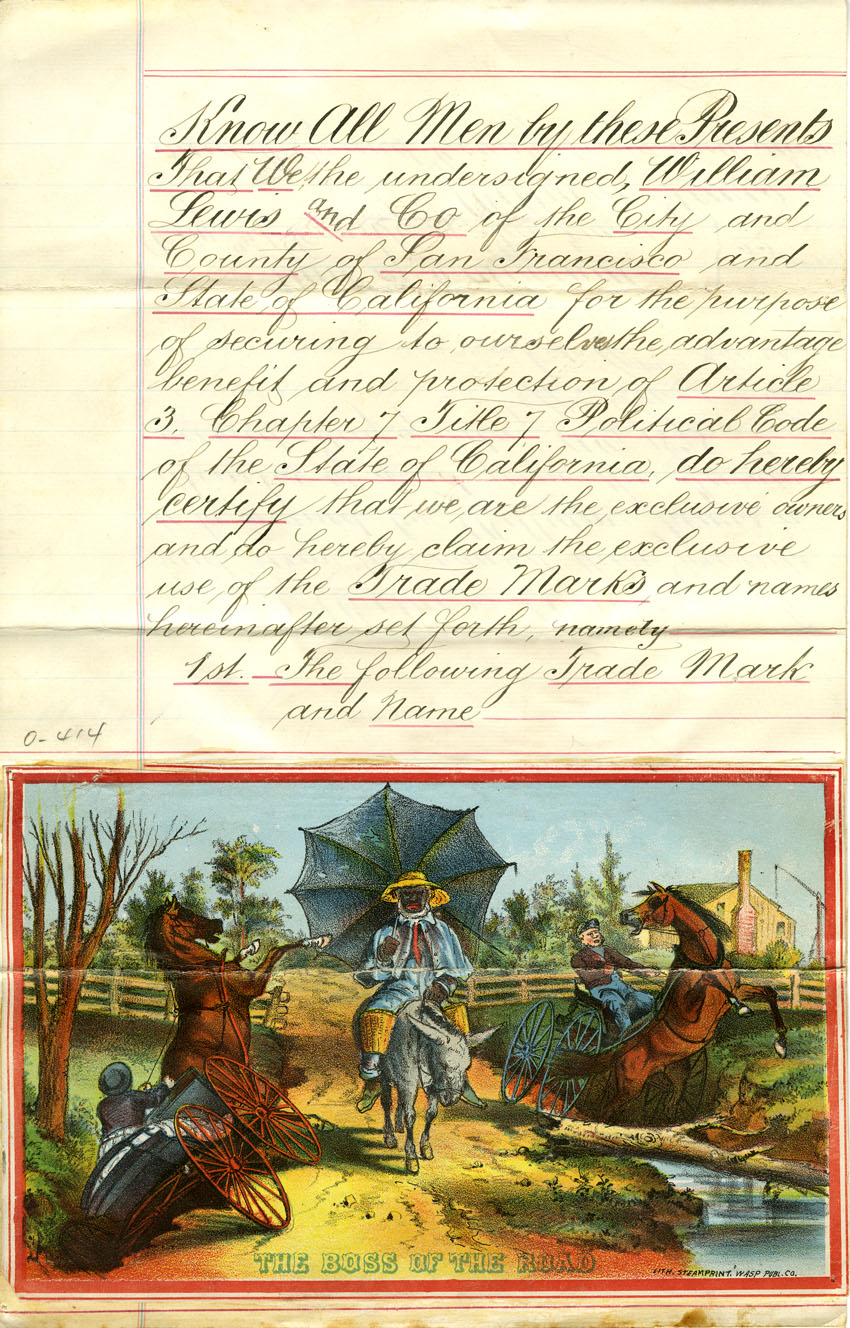 Know All Men by these Presents
That We, the undersigned, William
Lewis and Co of the City and
County of San Francisco and
State of California for the purpose
of securing to ourselves the advantage
benefit and protection of Article
3. Chapter 7 Title 7 Political Code
of the State of California, do hereby
certify that we are the exclusive owners
and do hereby claim the exclusive
use of the Trade Marks and names
hereinafter set forth, namely
1st. The following Trade Mark
and Name
O-414
THE BOSS OF THE ROAD
LITH. STEAMPRINT. WASP PUBL. CO.